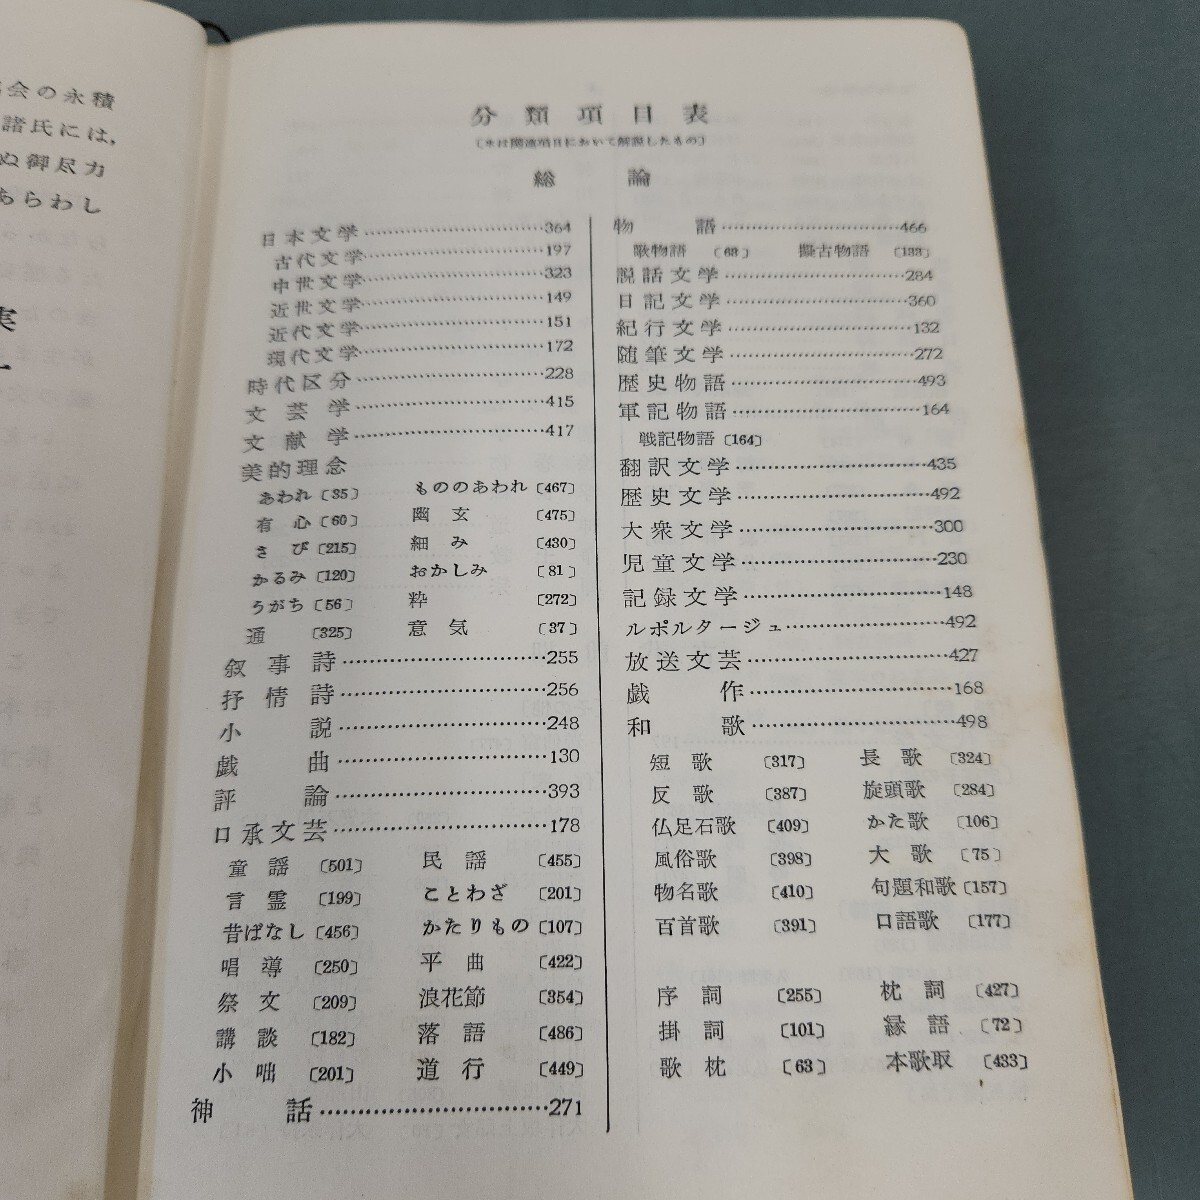 会の永積
諸氏には,
ぬ御尽力
あらわし
実
分類項目表
〔*は関連項目において解説したもの〕
総論
日本文学……364
古代文学……197
中世文学……323
近世文学……149
近代文学……151
現代文学……172
時代区分……228
文芸学……415
文献学……417
美的理念
あわれ〔35〕 もののあわれ〔467〕
有心〔60〕 幽玄〔475〕
さび〔215〕 細み〔430〕
かるみ〔120〕 おかしみ〔81〕
うがち〔56〕 粋〔272〕
通〔325〕 意気〔37〕
叙事詩……255
抒情詩……256
小説……248
戯曲……130
評論……393
口承文芸……178
童謡〔501〕 民謡〔455〕
言霊〔199〕 ことわざ〔201〕
昔ばなし〔456〕 かたりもの〔107〕
唱導〔250〕 平曲〔422〕
祭文〔209〕 浪花節〔354〕
講談〔182〕 落語〔486〕
小咄〔201〕 道行〔449〕
神話……271
物語……466
歌物語〔63〕 擬古物語〔133〕
説話文学……284
日記文学……360
紀行文学……132
随筆文学……272
歴史物語……493
軍記物語……164
戦記物語〔164〕
翻訳文学……435
歴史文学……492
大衆文学……300
児童文学……230
記録文学……148
ルポルタージュ……492
放送文芸……427
戯作……168
和歌……498
短歌〔317〕 長歌〔324〕
反歌〔387〕 旋頭歌〔284〕
仏足石歌〔409〕 かた歌〔106〕
風俗歌〔398〕 大歌〔75〕
物名歌〔410〕 句題和歌〔157〕
百首歌〔391〕 口語歌〔177〕
序詞〔255〕 枕詞〔427〕
掛詞〔101〕 縁語〔72〕
歌枕〔63〕 本歌取〔433〕